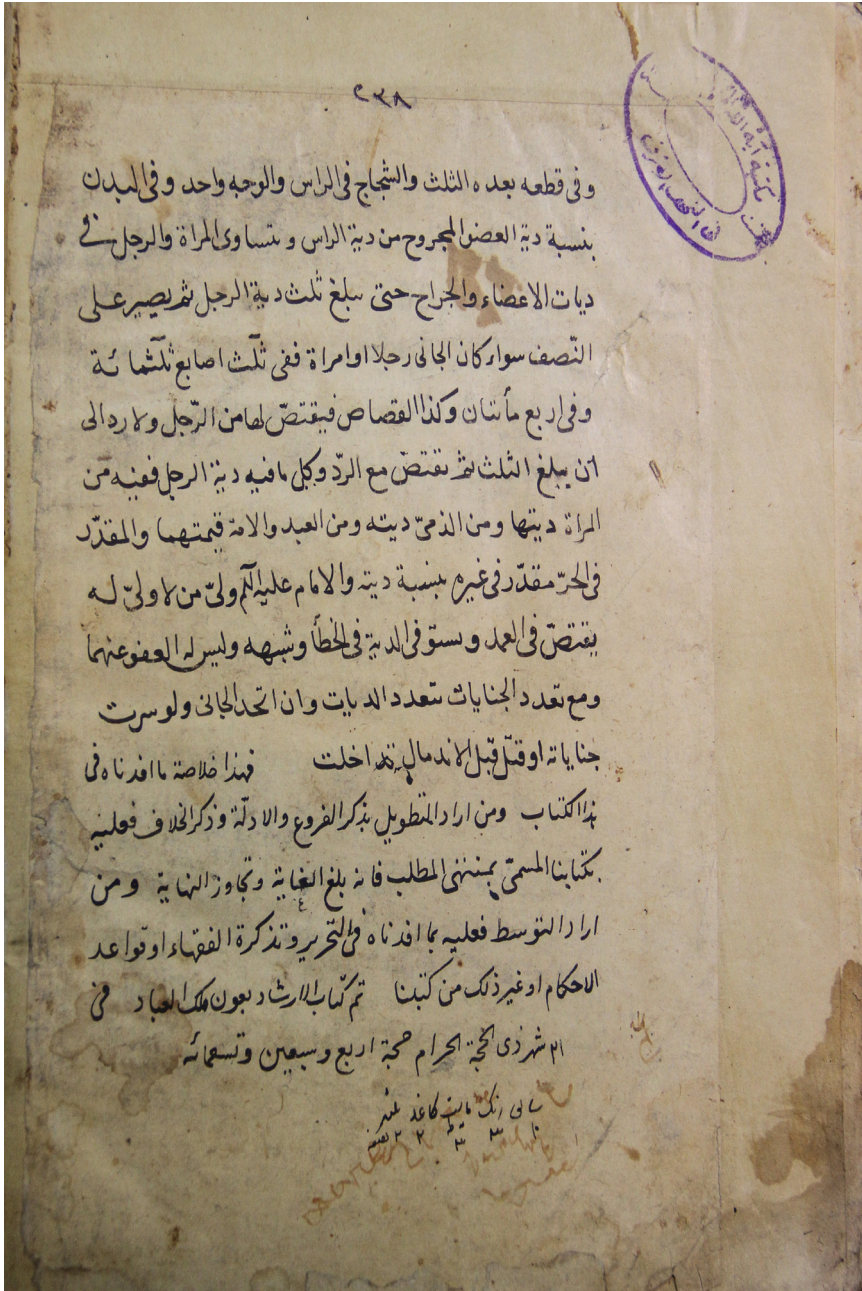 ٢٣٨
وفى قطعه بعده الثلث والشجاج فى الراس والوجه واحد وفى البدن
بنسبة دية العضو المجروح من دية الراس ويتساوى المراة والرجل فى
ديات الاعضاء والجراح حتى يبلغ ثلث دية الرجل ثم يصير على
النّصف سواء كان الجانى رجلا او امراة ففى ثلث اصابع ثلثمائة
وفى اربع مأتتان وكذا القصاص فيقتصّ لها من الرّجل ولا رد الى
ان يبلغ الثلث ثم تقتصّ مع الردّ وكل ما فيه دية الرجل ففيه من
المراة ديتها ومن الذمىّ ديته ومن العبد والامة قيمتهما والمقدّر
فى الحرّ مقدّر فى غيره بنسبة ديته والامام عليه السلم ولىّ من لا ولىّ له
يقتصّ فى العمد ويستوفى الدية فى الخطأ وشبهه وليس له العفو عنهما
ومع تعدد الجنايات تتعدد الديات وان اتحد الجانى ولو سرت
جناياته او قتل قبل الاندمال تداخلت فهذا خلاصة ما افدناه فى
هذا الكتاب ومن اراد التطويل بذكر الفروع والادلّة وذكر الخلاف فعليه
بكتابنا المسمىّ بمنتهى المطلب فانه بلغ الغاية وتجاوز النهاية ومن
اراد التوسط فعليه بما افدناه فى التحرير وتذكرة الفقهاء او قواعد
الاحكام او غير ذلك من كتبنا تم كتاب الارشاد بعون ملك العباد فى
شهر ذى الحجة الحرام حجة اربع وسبعين وتسعمائه
كاغذ
مكتبة آية الله